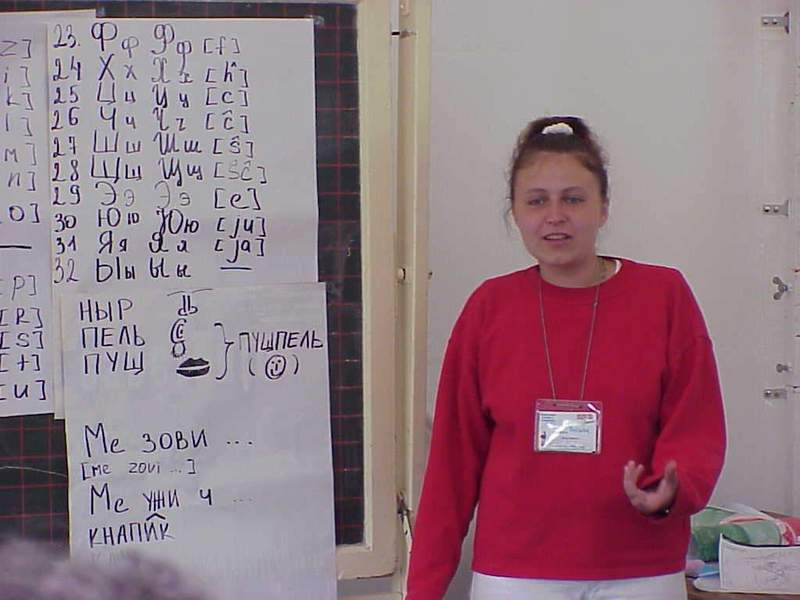 Z]
i]
k]
l]
m]
n]
O]
[P]
[R]
[S]
[t]
[u]
23. Ф ф Ф ф [f]
24 Х х Х х [ĥ]
25 Ц ц Ц ц [c]
26 Ч ч Ч ч [ĉ]
27 Ш ш Ш ш [ŝ]
28 Щ щ Щ щ [ŝĉ]
29 Э э Э э [e]
30 Ю ю Ю ю [ju]
31 Я я Я я [ja]
32 Ы ы Ы ы —
НЫР
ПЕЛЬ
ПУЩ
} ПУШПЕЛЬ
(☺)
Ме зови ...
[me zovi ...]
Ме ужи ч ...
кнапик